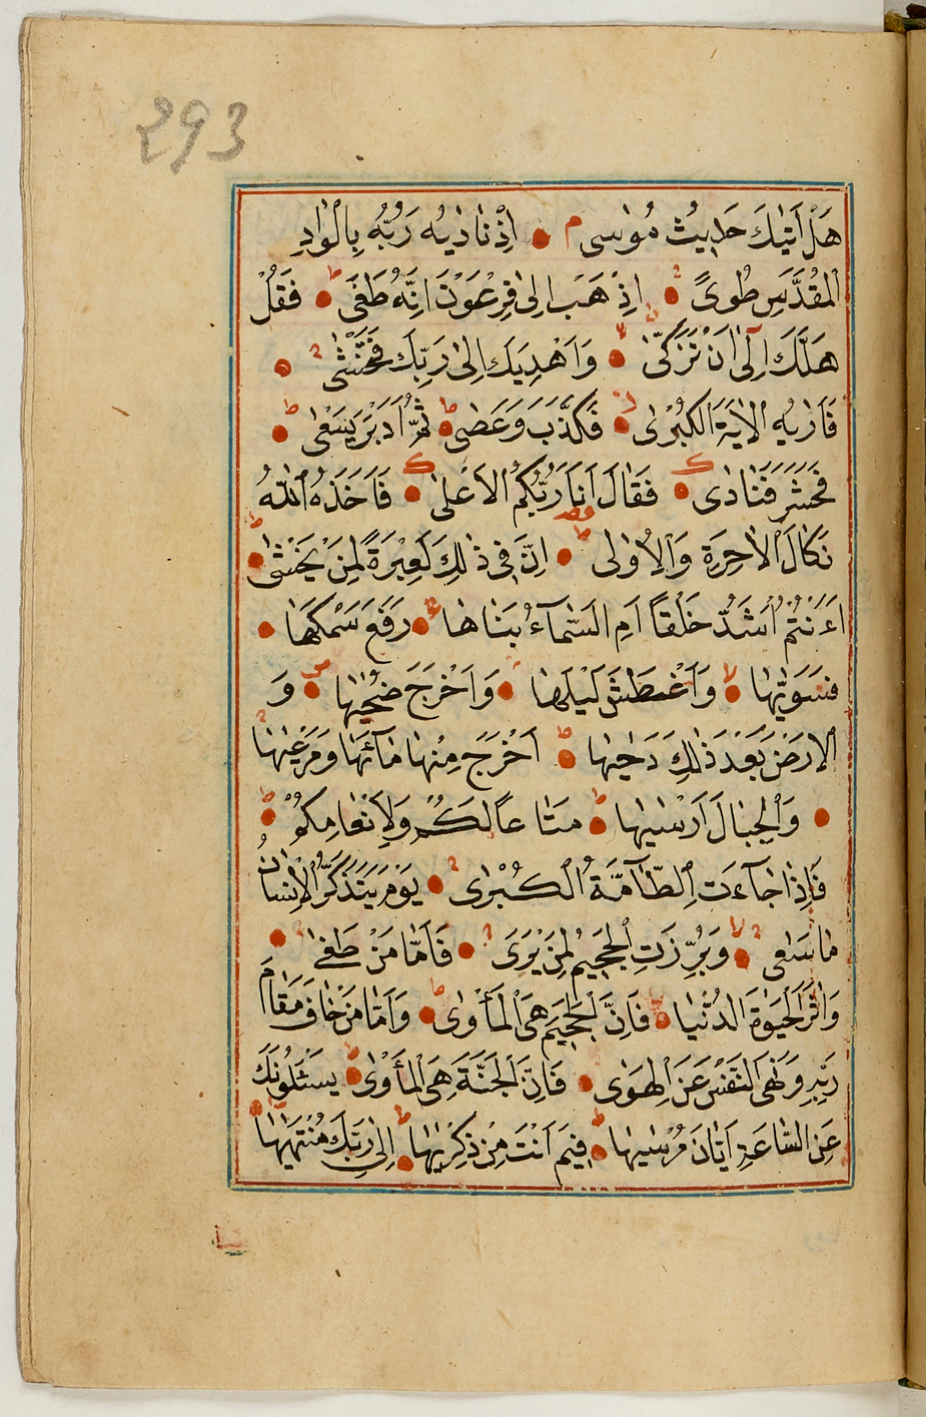 293
هَلْ اَتٰيكَ حَدٖيثُ مُوسٰى م اِذْ نَادٰيهُ رَبُّهُ بِالْوَادِ
الْمُقَدَّسِ طُوىً اِذْهَبْ اِلٰى فِرْعَوْنَ اِنَّهُ طَغٰى ط فَقُلْ
هَلْ لَكَ اِلٰٓى اَنْ تَزَكّٰى لا وَاَهْدِيَكَ اِلٰى رَبِّكَ فَتَخْشٰى
فَاَرٰيهُ الْاٰيَةَ الْكُبْرٰى فَكَذَّبَ وَعَصٰى ط ثُمَّ اَدْبَرَ يَسْعٰى ط
فَحَشَرَ فَنَادٰى فَقَالَ اَنَا رَبُّكُمُ الْاَعْلٰى فَاَخَذَهُ اللّٰهُ
نَكَالَ الْاٰخِرَةِ وَالْاُولٰى ط اِنَّ فٖى ذٰلِكَ لَعِبْرَةً لِمَنْ يَخْشٰى ط
ءَاَنْتُمْ اَشَدُّ خَلْقًا اَمِ السَّمَٓاءُ بَنَاهَا رَفَعَ سَمْكَهَا
فَسَوّٰيهَا لا وَاَغْطَشَ لَيْلَهَا وَاَخْرَجَ ضُحٰيهَا ص وَ
الْاَرْضَ بَعْدَ ذٰلِكَ دَحٰيهَا ط اَخْرَجَ مِنْهَا مَٓاءَهَا وَمَرْعٰيهَا
وَالْجِبَالَ اَرْسٰيهَا ط مَتَاعًا لَكُمْ وَلِاَنْعَامِكُمْ ط
فَاِذَا جَٓاءَتِ الطَّٓامَّةُ الْكُبْرٰى يَوْمَ يَتَذَكَّرُ الْاِنْسَانُ
مَا سَعٰى لا وَبُرِّزَتِ الْجَحٖيمُ لِمَنْ يَرٰى فَاَمَّا مَنْ طَغٰى
وَاٰثَرَ الْحَيٰوةَ الدُّنْيَا فَاِنَّ الْجَحٖيمَ هِىَ الْمَأْوٰى ط وَاَمَّا مَنْ خَافَ مَقَامَ
رَبِّهٖ وَنَهَى النَّفْسَ عَنِ الْهَوٰى فَاِنَّ الْجَنَّةَ هِىَ الْمَأْوٰى ط يَسْـَٔلُونَكَ
عَنِ السَّاعَةِ اَيَّانَ مُرْسٰيهَا ط فٖيمَ اَنْتَ مِنْ ذِكْرٰيهَا ط اِلٰى رَبِّكَ مُنْتَهٰيهَا